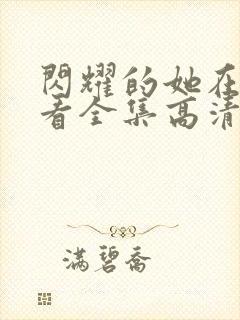 閃耀的她在
看全集高清
满碧喬